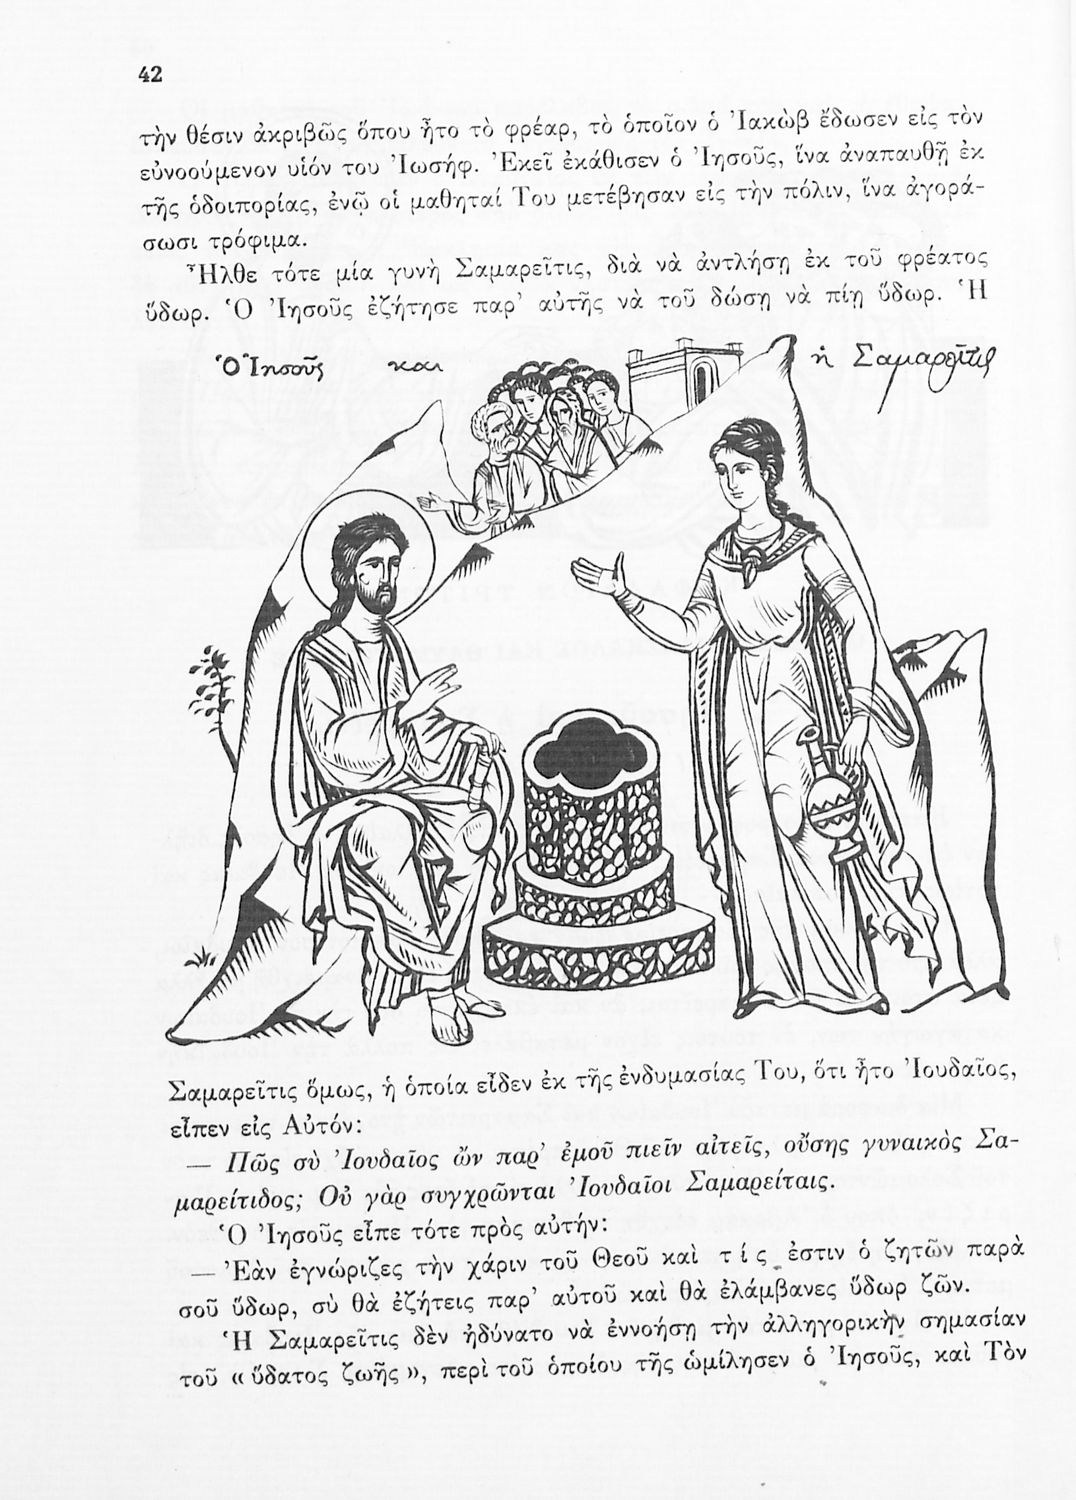 42
τὴν θέσιν ἀκριβῶς ὅπου ἦτο τὸ φρέαρ, τὸ ὁποῖον ὁ Ἰακὼβ ἔδωσεν εἰς τὸν
εὐνοούμενον υἱόν του Ἰωσήφ. Ἐκεῖ ἐκάθισεν ὁ Ἰησοῦς, ἵνα ἀναπαυθῇ ἐκ
τῆς ὁδοιπορίας, ἐνῷ οἱ μαθηταί Του μετέβησαν εἰς τὴν πόλιν, ἵνα ἀγορά-
σωσι τρόφιμα.
Ἦλθε τότε μία γυνὴ Σαμαρεῖτις, διὰ νὰ ἀντλήσῃ ἐκ τοῦ φρέατος
ὕδωρ. Ὁ Ἰησοῦς ἐζήτησε παρ' αὐτῆς νὰ τοῦ δώσῃ νὰ πίῃ ὕδωρ. Ἡ
Ὁ Ἰησοῦς και ἡ Σαμαρεῖτις
Σαμαρεῖτις ὅμως, ἡ ὁποία εἶδεν ἐκ τῆς ἐνδυμασίας Του, ὅτι ἦτο Ἰουδαῖος,
εἶπεν εἰς Αὐτόν:
— Πῶς σὺ Ἰουδαῖος ὢν παρ' ἐμοῦ πιεῖν αἰτεῖς, οὔσης γυναικὸς Σα-
μαρείτιδος; Οὐ γὰρ συγχρῶνται Ἰουδαῖοι Σαμαρείταις.
Ὁ Ἰησοῦς εἶπε τότε πρὸς αὐτήν:
— Ἐὰν ἐγνώριζες τὴν χάριν τοῦ Θεοῦ καὶ τίς ἐστιν ὁ ζητῶν παρὰ
σοῦ ὕδωρ, σὺ θὰ ἐζήτεις παρ' αὐτοῦ καὶ θὰ ἐλάμβανες ὕδωρ ζῶν.
Ἡ Σαμαρεῖτις δὲν ἠδύνατο νὰ ἐννοήσῃ τὴν ἀλληγορικὴν σημασίαν
τοῦ «ὕδατος ζωῆς», περὶ τοῦ ὁποίου τῆς ὡμίλησεν ὁ Ἰησοῦς, καὶ Τὸν